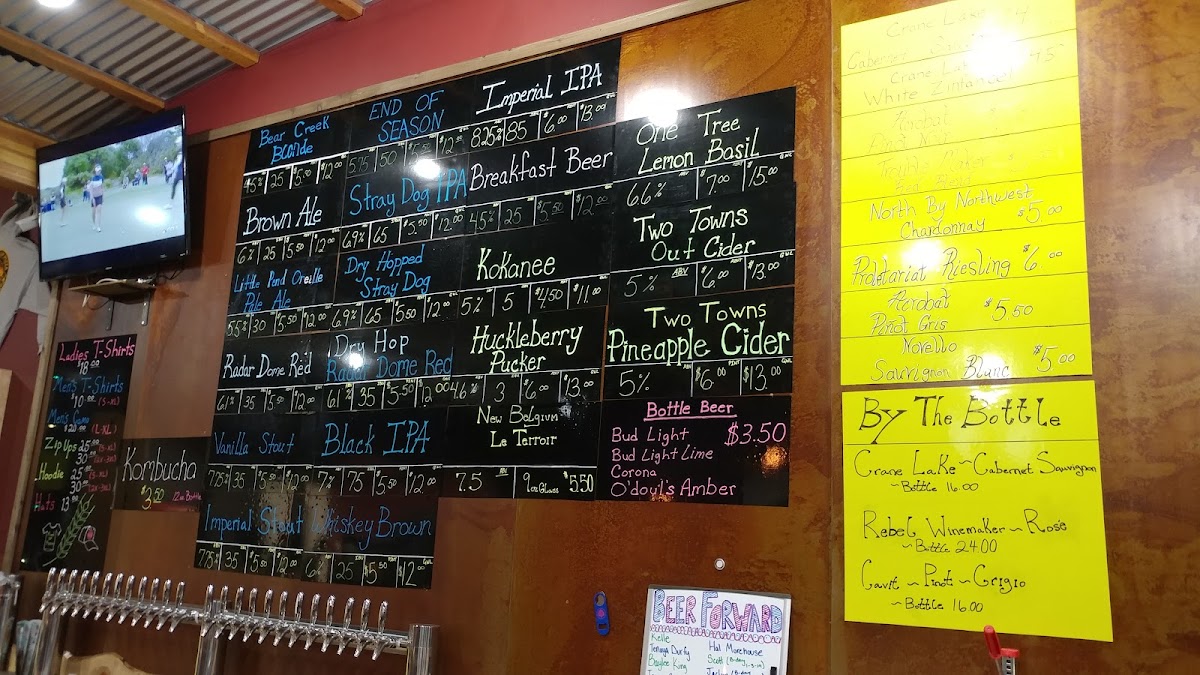 Ladies T-Shirts
18.00
Men's T-Shirts
$10.00 (S-XL)
Men's Camo
$20.00 (L-XL)
Zip Ups 25.00
30.00
Hoodie 25.00
30.00
Hats 13.00
Kombucha
$3.50 12oz Bottle
Bear Creek
Blonde
4.5% 25 $5.50 $12.00
Brown Ale
6% 25 $5.50 $12.00
Little Pend Oreille
Pale Ale
5.5% 30 $5.50 $12.00
Radar Dome Red
6.1 35 $5.50 $12.00
Vanilla Stout
7.75% 35 $5.50 $12.00
Imperial Stout
7.75% 35 $5.50 $12.00
END OF
SEASON
5.75 50 $5.50 $12.00
Stray Dog IPA
6.9% 65 $5.50 $12.00
Dry Hopped
Stray Dog
6.9% 65 $5.50 $12.00
Dry Hop
Radar Dome Red
6.1 35 $5.50 $12.00
Black IPA
7% 75 $5.50 $12.00
Whiskey Brown
6% 25 $5.50 $12.00
Imperial IPA
8.25% 85 $6.00 $13.00
Breakfast Beer
4.5% 25 $5.50 $12.00
Kokanee
5% 5 $4.50 $11.00
Huckleberry
Pucker
4.6% 3 $6.00 $13.00
New Belgium
Le Terroir
7.5 9oz Glass $5.50
One Tree
Lemon Basil
6.6% $7.00 $15.00
Two Towns
Out Cider
5% ABV $6.00 $13.00
Two Towns
Pineapple Cider
5% $6.00 $13.00
Bottle Beer
Bud Light $3.50
Bud Light Lime
Corona
O'doul's Amber
Crane Lake
Cabernet
Crane
White Zinfandel
Acrobat
North By Northwest
Chardonnay $5.00
Proletariat Riesling $6.00
Acrobat
Pinot Gris $5.50
Novello
Sauvignon Blanc $5.00
By The Bottle
Crane Lake ~ Cabernet Sauvignon
~ Bottle 16.00
Rebel Winemaker ~ Rose
~ Bottle 24.00
Cavit ~ Pinot ~ Grigio
~ Bottle 16.00
BEER FORWARD
Kelle
Hal Morehouse
Baylee King
Scott